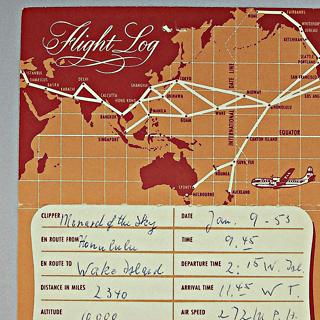 Flight Log
NOME
FAIRBANKS
JUNEAU
KETCHIKAN
SEATTLE
PORTLAND
SAN FRANCISCO
LOS ANG
ISTANBUL
DAMASCUS
BASRA
KARACHI
DELHI
CALCUTTA
HONG KONG
SHANGHAI
TOKYO
OKINAWA
BANGKOK
MANILA
GUAM
WAKE
MIDWAY
HONOLULU
SINGAPORE
INTERNATIONAL DATE LINE
EQUATOR
CANTON ISLAND
SUVA, FIJI
NOUMEA
SYDNEY
MELBOURNE
AUCKLAND
CLIPPER Monarch of the Sky
DATE Jan. 9 - 53
EN ROUTE FROM Honolulu
TIME 9.45
EN ROUTE TO Wake Island
DEPARTURE TIME 2.15 W. Isl.
DISTANCE IN MILES 2340
ARRIVAL TIME 11.45 W T.
ALTITUDE 10,000
AIR SPEED 272 M. P. H.